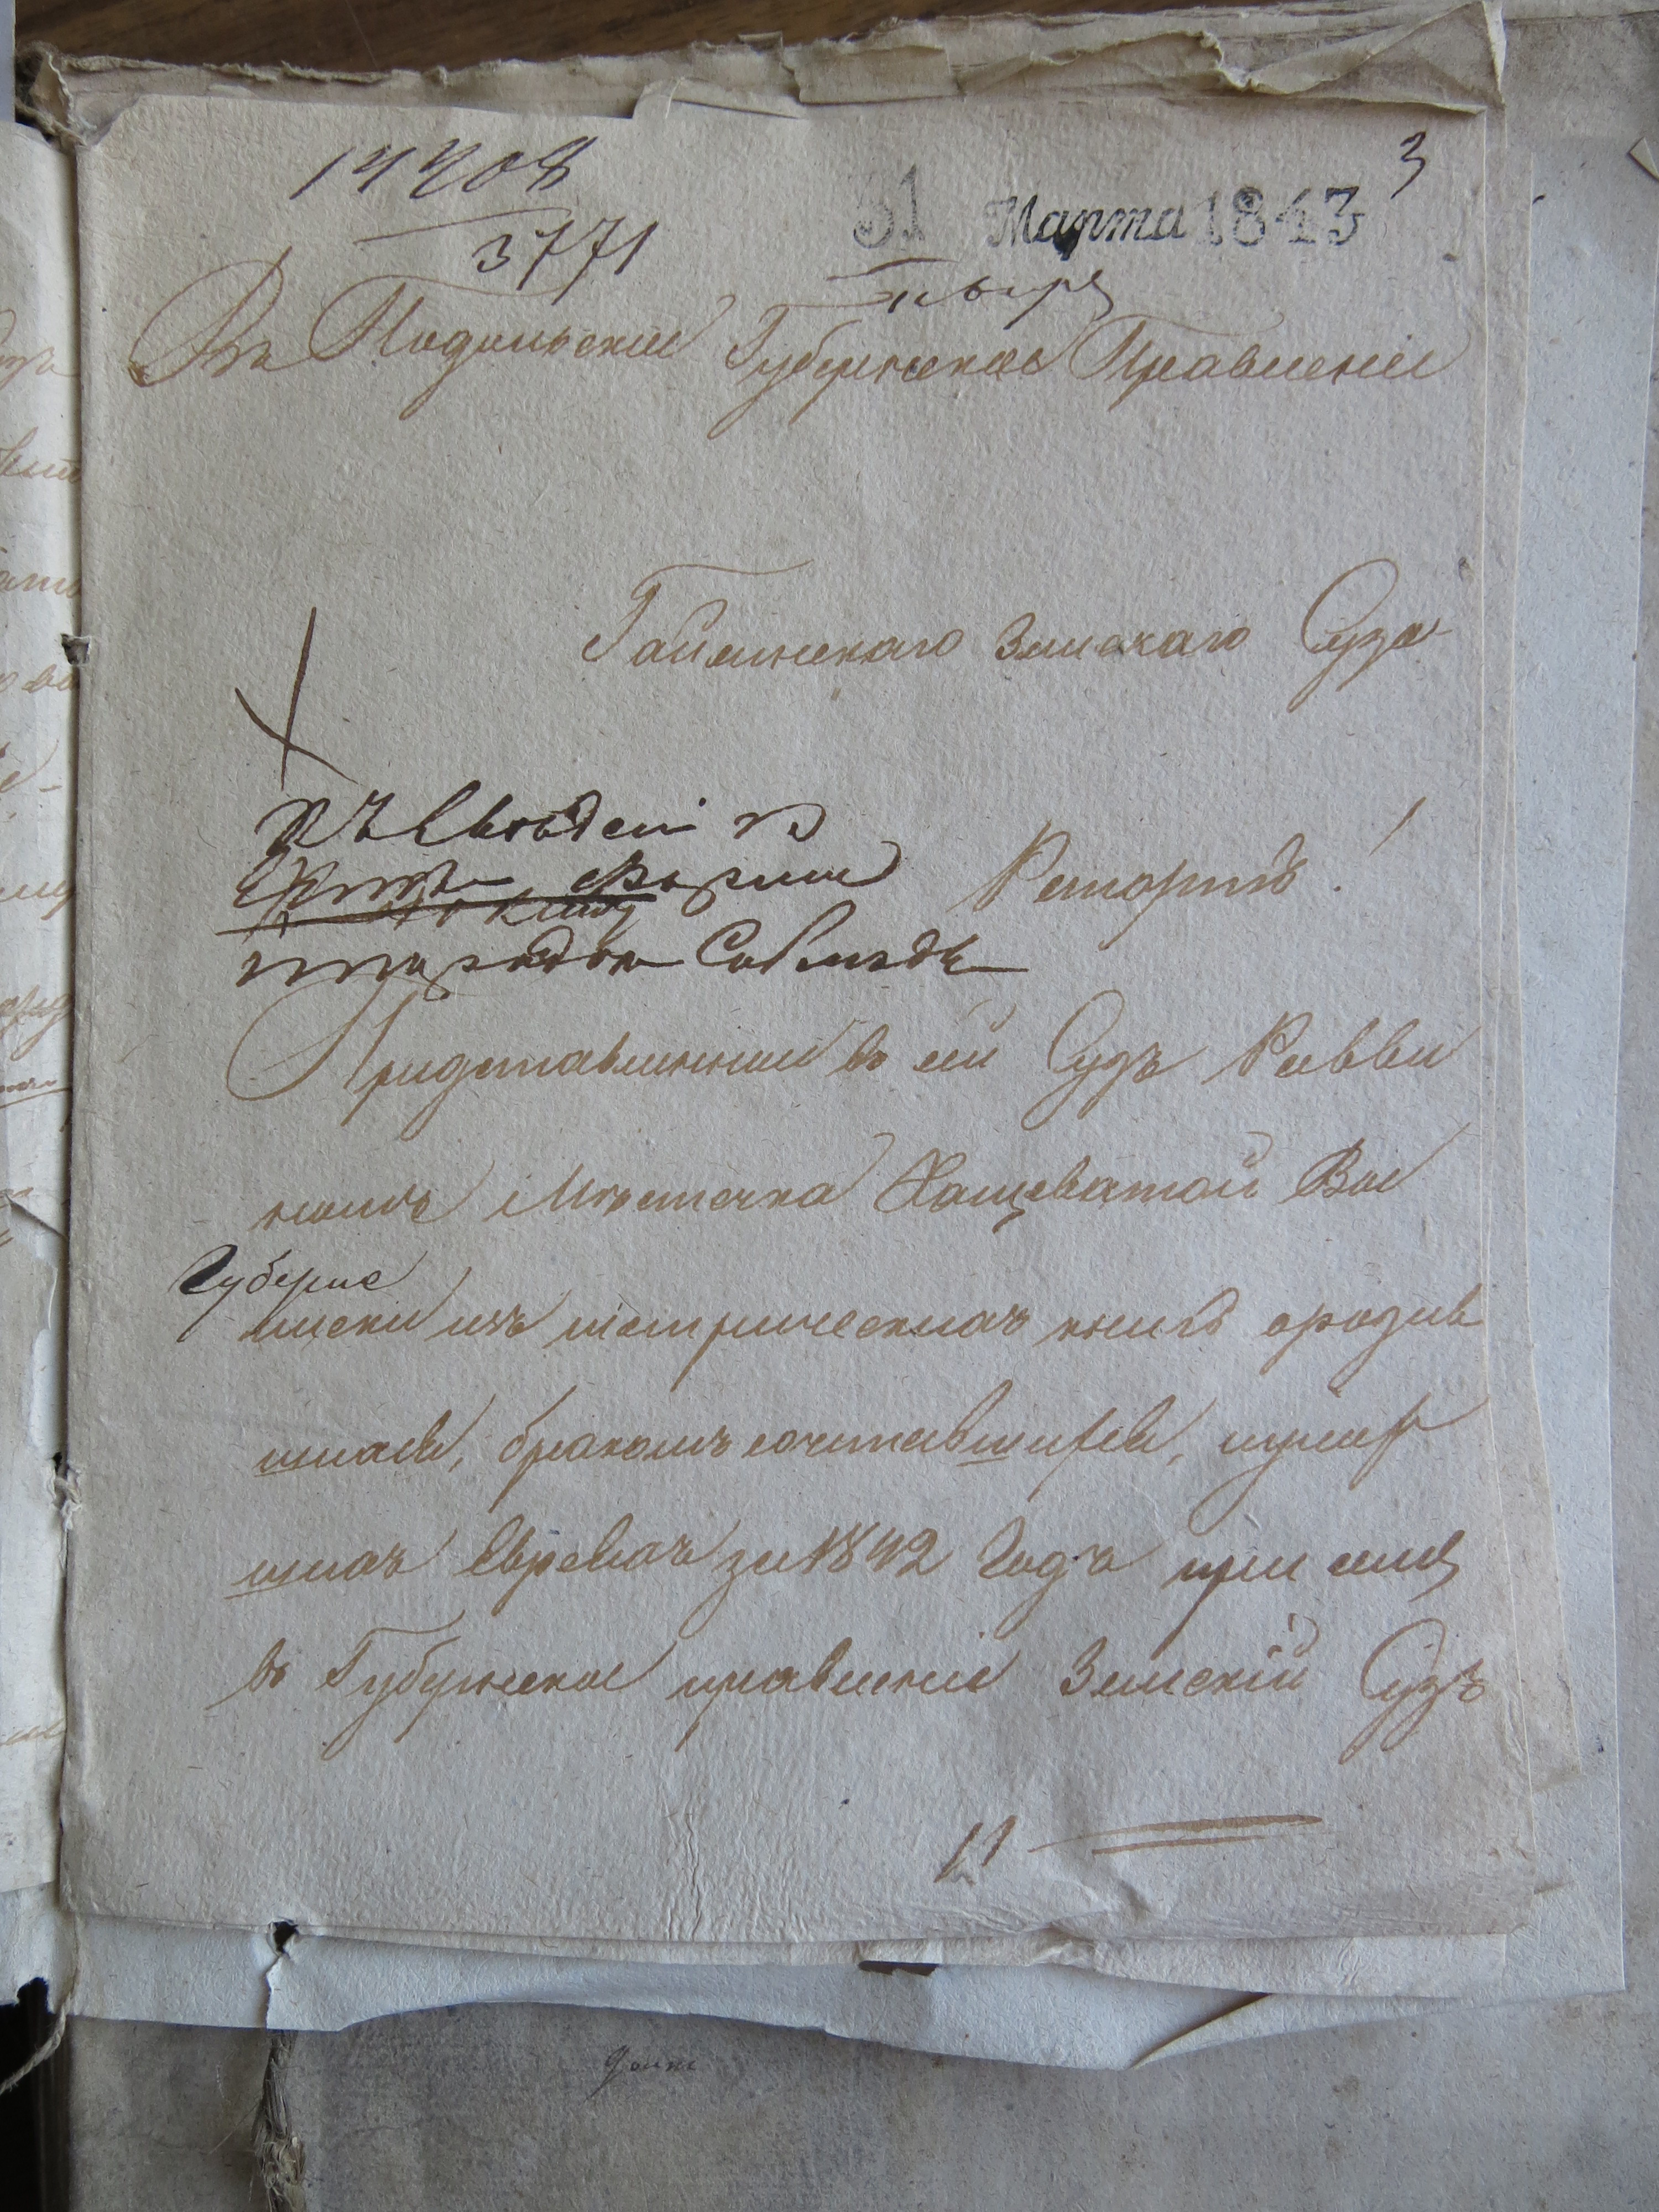 14408
3771
31 Марта 1843
3
Въ Подольское Губернское Правленіе
Гайсинскаго Земскаго Суда
Къ Сведен
Рапортъ!
Представленные въ сей Судъ Равви
номъ Местечка Хащеватой Вы
Губерне
писки изъ метрическихъ книгъ о родив
шихся, бракомъ сочетавшихся, иумер
шихъ Евреевъ за 1842 Годъ при семъ
въ Губернское правленіе Земскій Судъ